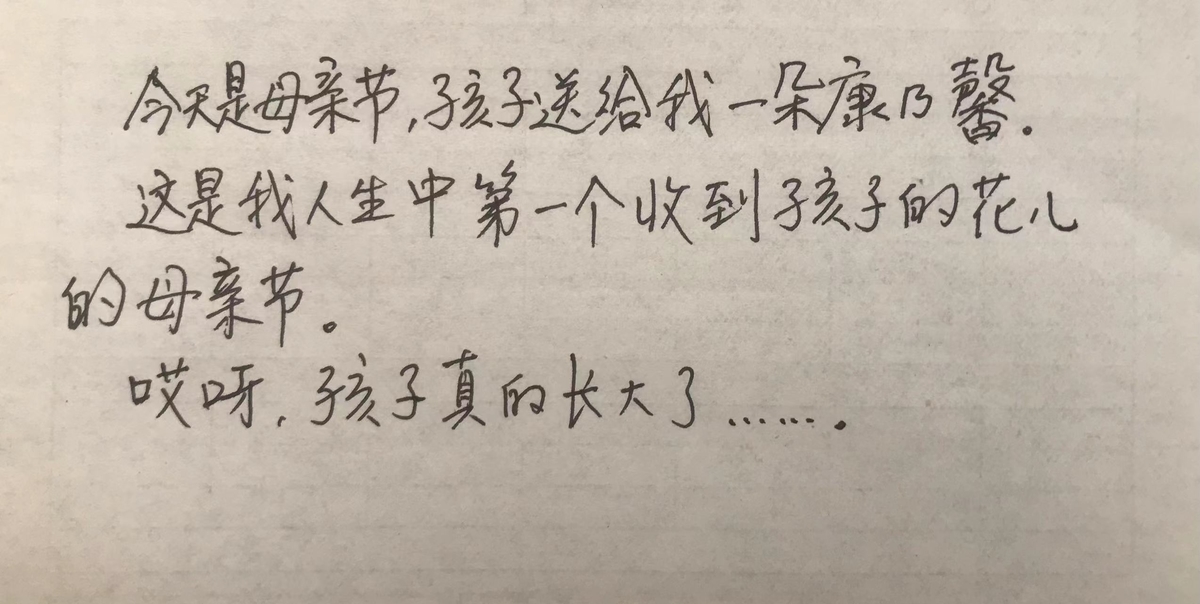 今天是母亲节,孩子送给我一朵康乃馨.
这是我人生中第一个收到孩子的花儿
的母亲节。
哎呀,孩子真的长大了…….